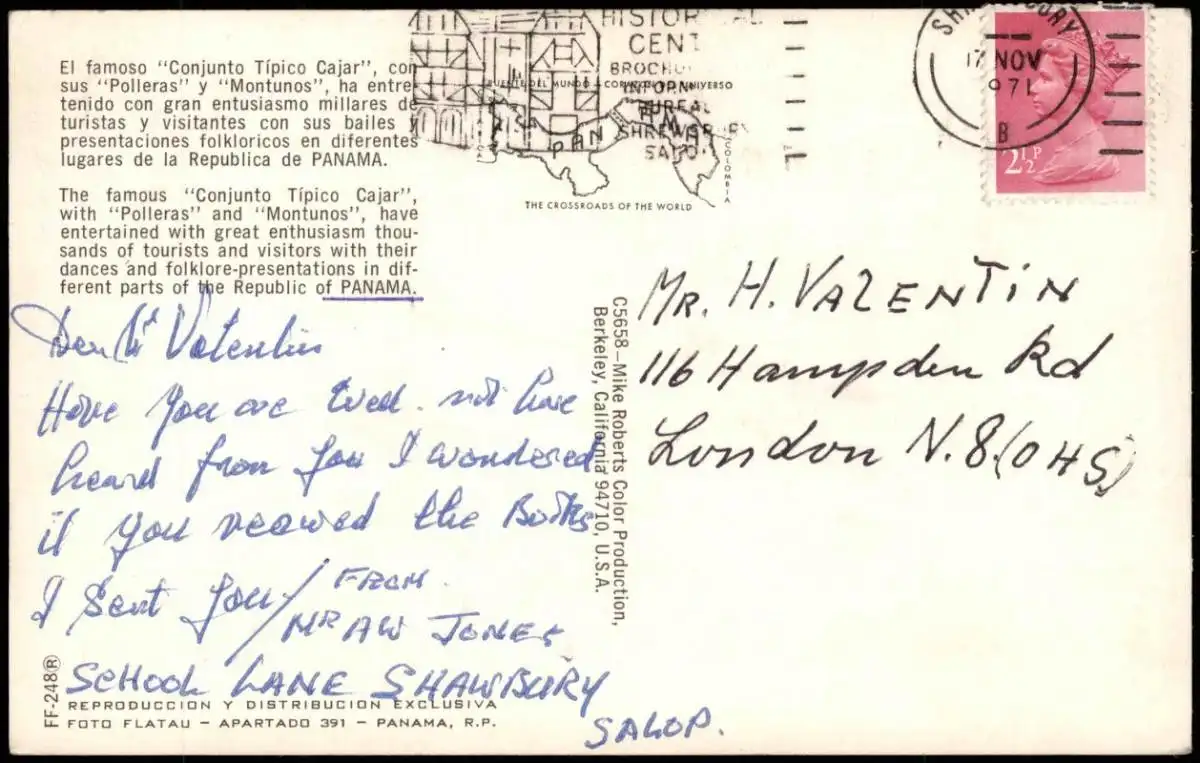 El famoso "Conjunto Típico Cajar", con
sus "Polleras" y "Montunos", ha entre
tenido con gran entusiasmo millares de
turistas y visitantes con sus bailes y
presentaciones folkloricos en diferentes
lugares de la Republica de PANAMA.
The famous "Conjunto Típico Cajar",
with "Polleras" and "Montunos", have
entertained with great enthusiasm thou-
sands of tourists and visitors with their
dances and folklore-presentations in dif-
ferent parts of the Republic of PANAMA.
Dear Mr Valentin
Hope you are well. not have
heard from you I wondered
if you received the Books
I Sent you/ FROM
MR AW JONES
SCHOOL LANE SHAWBURY
SALOP.
FF-248®
REPRODUCCION Y DISTRIBUCION EXCLUSIVA
FOTO FLATAU - APARTADO 391 - PANAMA, R.P.
HISTORICAL
CENT
BROCHU
PUENTE DEL MUNDO CORAZON DEL UNIVERSO
INFORM
BUREAU
SHREWSBURY
SALOP
PAN M
COLOMBIA
THE CROSSROADS OF THE WORLD
C5658-Mike Roberts Color Production,
Berkeley, California 94710, U.S.A.
SHREWSBURY
17 NOV
1971
B
2½P
MR. H. VALENTIN
116 Hampden Rd
London N.8.(OHS)